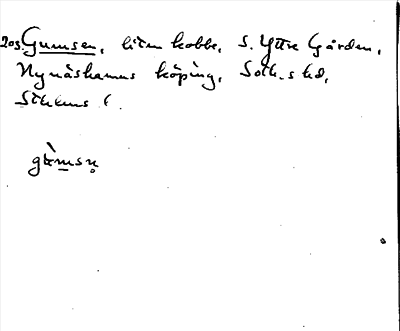 203. Gumsen, liten kobbe, S. Yttre Gården,
Nynäshamns köping, Soth. s hd,
Sthlms l.
gu̇̀msn̥